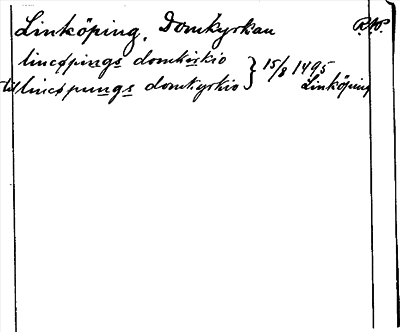 Linköping, Domkyrkan R.Ap.
lincøpings domkirkio } 15/8 1495
til lincøpungs domkyrkio } Linköping